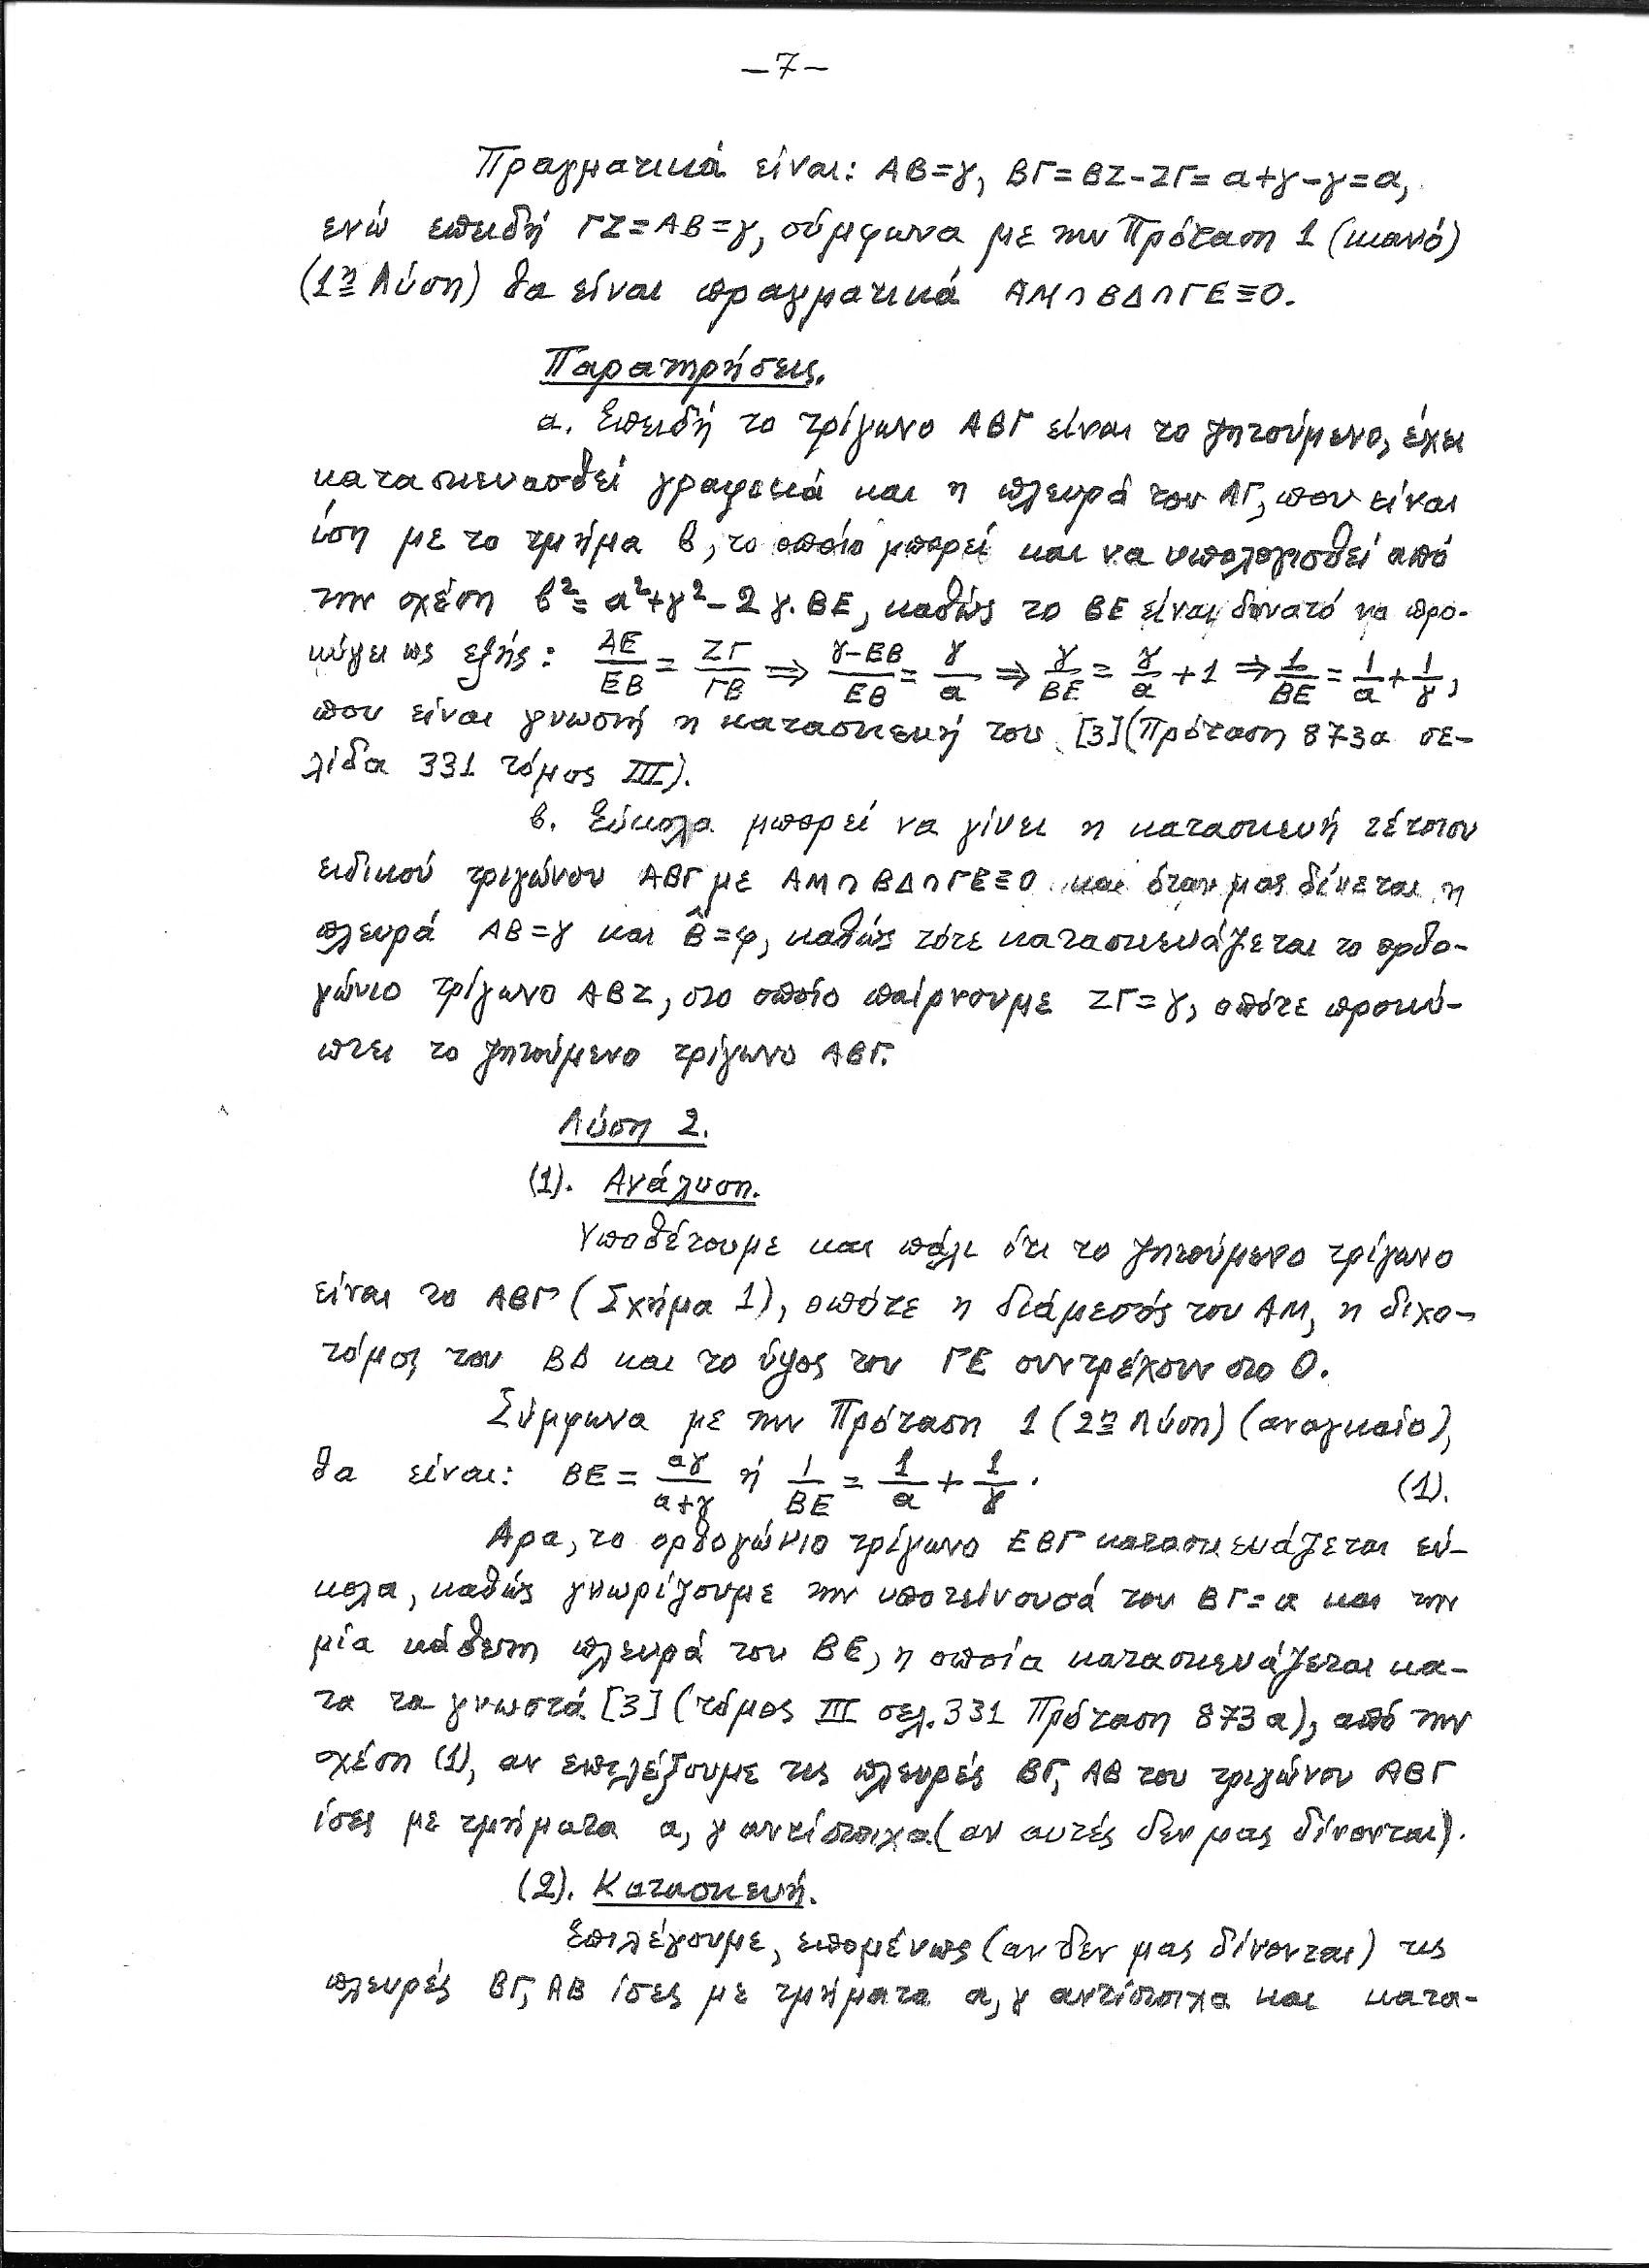 –7–
Πραγματικά είναι: ΑΒ=γ, ΒΓ=ΒΖ-ΖΓ=α+γ-γ=α,
ενώ επειδή ΓΖ=ΑΒ=γ, σύμφωνα με την Πρόταση 1 (ικανό)
(1η Λύση) θα είναι πραγματικά ΑΜ∩ΒΔ∩ΓΕ≡Ο.
Παρατηρήσεις.
α. Επειδή το τρίγωνο ΑΒΓ είναι το ζητούμενο, έχει
κατασκευασθεί γραφικά και η πλευρά του ΑΓ, που είναι
ίση με το τμήμα β, το οποίο μπορεί και να υπολογισθεί από
την σχέση β²=α²+γ²-2γ.ΒΕ, καθώς το ΒΕ είναι δυνατό να προ-
κύψει ως εξής: ΑΕ/ΕΒ = ΖΓ/ΓΒ ⇒ γ-ΕΒ/ΕΒ = γ/α ⇒ γ/ΒΕ = γ/α + 1 ⇒ 1/ΒΕ = 1/α + 1/γ,
που είναι γνωστή η κατασκευή του [3] (Πρόταση 873α σε-
λίδα 331 τόμος ΙΙΙ).
β. Εύκολα μπορεί να γίνει η κατασκευή τέτοιου
ειδικού τριγώνου ΑΒΓ με ΑΜ∩ΒΔ∩ΓΕ≡Ο και όταν μας δίνεται η
πλευρά ΑΒ=γ και B̂=φ, καθώς τότε κατασκευάζεται το ορθο-
γώνιο τρίγωνο ΑΒΖ, στο οποίο παίρνουμε ΖΓ=γ, οπότε προκύ-
πτει το ζητούμενο τρίγωνο ΑΒΓ.
Λύση 2.
(1). Ανάλυση.
Υποθέτουμε και πάλι ότι το ζητούμενο τρίγωνο
είναι το ΑΒΓ (Σχήμα 1), οπότε η διάμεσός του ΑΜ, η διχο-
τόμος του ΒΔ και το ύψος του ΓΕ συντρέχουν στο Ο.
Σύμφωνα με την Πρόταση 1 (2η Λύση) (αναγκαίο),
θα είναι: ΒΕ = αγ/α+γ ή 1/ΒΕ = 1/α + 1/γ. (1).
Άρα, το ορθογώνιο τρίγωνο ΕΒΓ κατασκευάζεται εύ-
κολα, καθώς γνωρίζουμε την υποτείνουσά του ΒΓ=α και την
μία κάθετη πλευρά του ΒΕ, η οποία κατασκευάζεται κα-
τα τα γνωστά [3] (τόμος ΙΙΙ σελ. 331 Πρόταση 873α), από την
σχέση (1), αν επιλέξουμε τις πλευρές ΒΓ, ΑΒ του τριγώνου ΑΒΓ
ίσες με τμήματα α, γ αντίστοιχα (αν αυτές δεν μας δίνονται).
(2). Κατασκευή.
Επιλέγουμε, επομένως (αν δεν μας δίνονται) τις
πλευρές ΒΓ, ΑΒ ίσες με τμήματα α, γ αντίστοιχα και κατα-